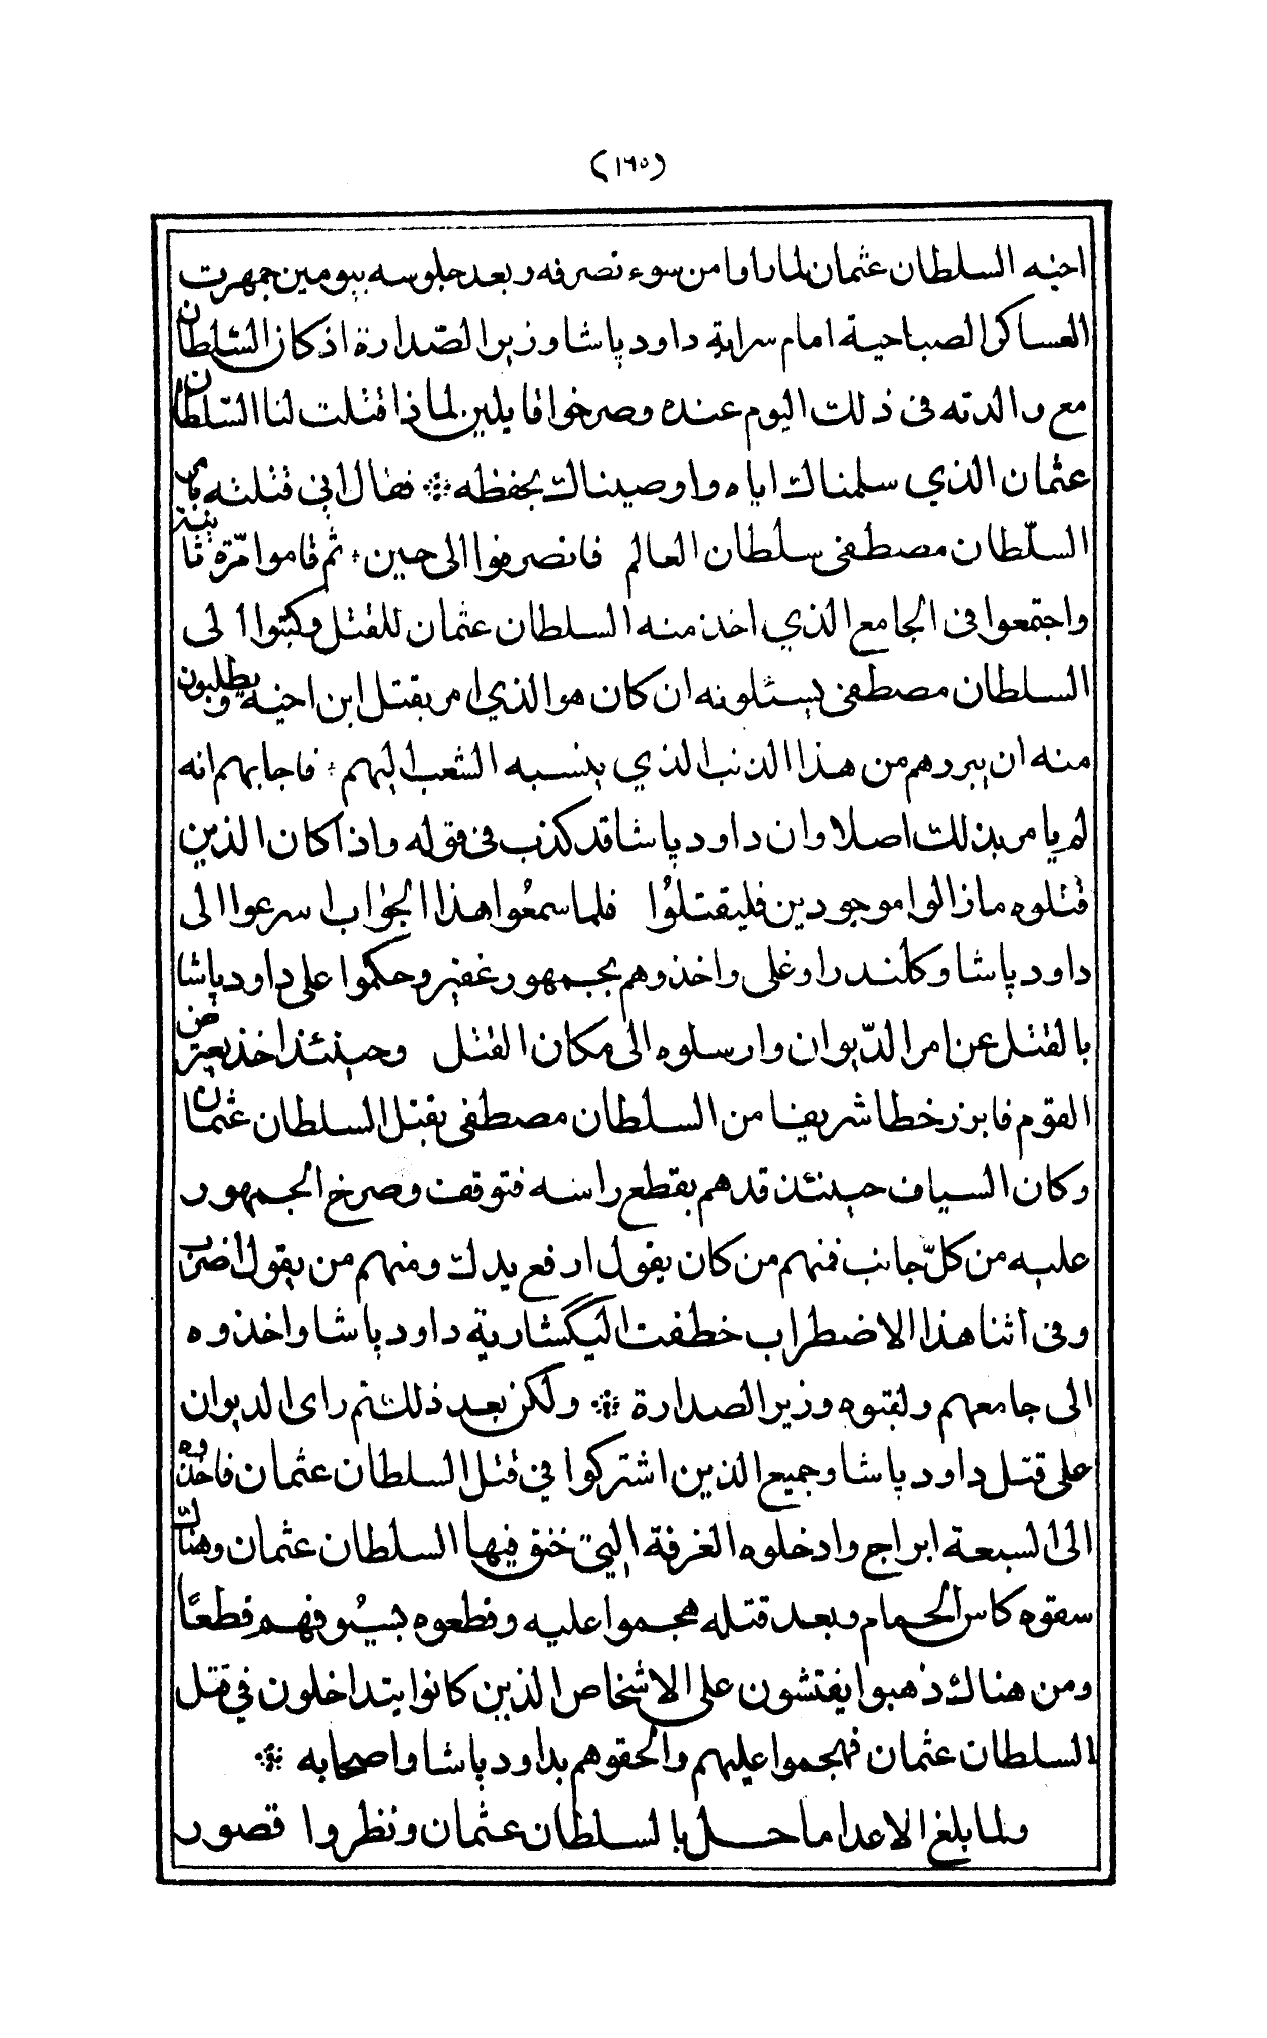 (١٦٥)
اخيه السلطان عثمان لما راوا من سوء تصرفه وبعد جلوسه بيومين جمهرت
العساكر الصباحية امام سراية داود پاشا وزير الصّدارة اذ كان السّلطان
مع والدته فى ذلك اليوم عنده وصرخوا قايلين لماذا قتلت لنا السّلطان
عثمان الذي سلمناك اياه واوصيناك بحفظه ۞ فقال انى قتلته بامر
السلّطان مصطفى سلطان العالم فانصرفوا الى حين ٠ ثم قاموا مّرة ثانية
واجتمعوا فى الجامع الذي اخذ منه السلطان عثمان للقتل وكتبوا الى
السلطان مصطفى يسئلونه ان كان هو الذي امر بقتل ابن اخيه ويطلبون
منه ان يبررهم من هذا الذنب الذي ينسبه الشعب اليهم ٠ فاجابهم انه
لم يامر بذلك اصلا وان داود پاشا قد كذب فى قوله واذا كان الذين
قتلوه ما زالوا موجودين فليقتلُوا فلما سمعُوا هذا الجوٰاب اسرعوا الى
داود پاشا وكلندر اوغلى واخذوهم بجمهور غفير وحكموا على داود پاشا
بالقتل عن امر الدّيوان وارسلوه الى مكان القتل وحينئذ اخذ يعترض
القوم فابرز خطا شريفا من السلطان مصطفى بقتل السلطان عثمان
وكان السياف حينئذ قد هم بقطع راسه فتوقف وصرخ الجمهور
عليه من كلّ جانب فمنهم من كان يقول ارفع يدك ومنهم من يقول اضرب
وفى اثنا هذا الاضطراب خطفت اليگشارية داود پاشا واخذوه
الى جامعهم ولقبوه وزير الصدارة ۞ ولكن بعد ذلك تم راى الديوان
على قتل داود پاشا وجميع الذين اشتركوا في قتل السلطان عثمان فاخذوه
الى السبعة ابراج وادخلوه الغرفة التي خنق فيها السلطان عثمان وهناك
سقوه كاس الحمام وبعد قتله هجموا عليه وقطعوه بسيُوفهم قطعًا
ومن هناك ذهبوا يفتشون على الاشخاص الذين كانوا يتداخلون في قتل
السلطان عثمان فهجموا عليهم والحقوهم بداود پاشا واصحابه ۞
ولما بلغ الاعدا ما حل بالسلطان عثمان ونظروا قصور